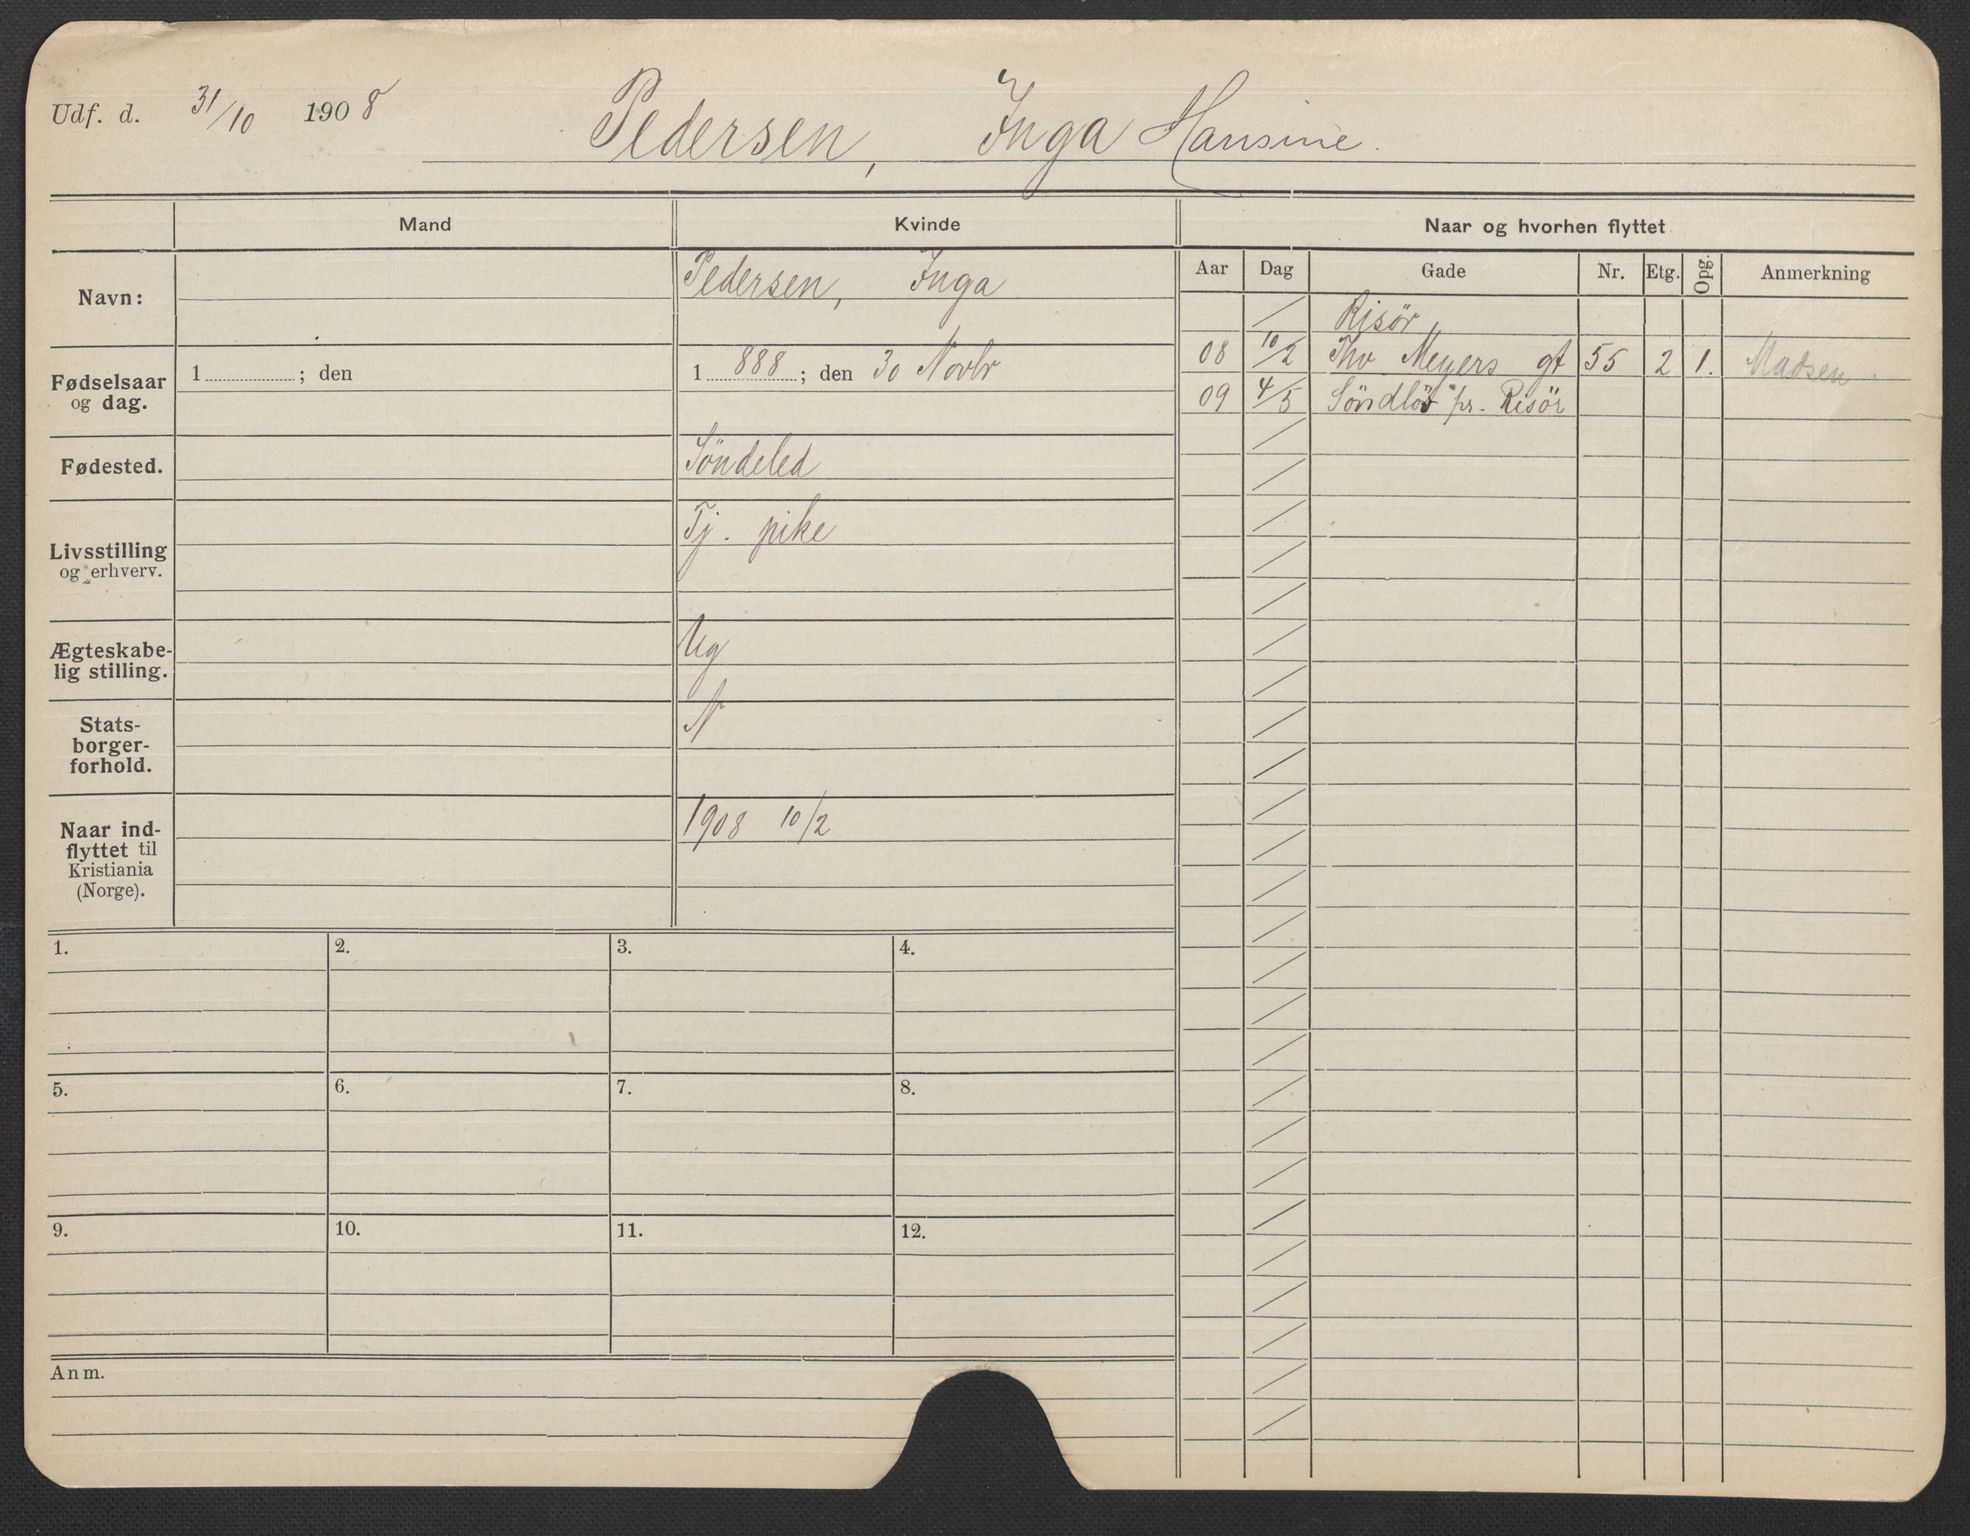 Udf. d. 31/10 1908 Pedersen, Inga Hansine.
Mand Kvinde Naar og hvorhen flyttet
Aar Dag Gade Nr. Etg. Opg. Anmerkning
Navn: Pedersen, Inga
Risör
08 10/2 Thv Meyers gt 55 2 1. Madsen
09 4/5 Söndlöv pr. Risör
Fødselsaar
og dag.
1 ; den
1888; den 30 Novbr
Fødested. Söndeled
Livsstilling
og erhverv.
Tj. pike
Ægteskabe-
lig stilling.
Ug
Stats-
borger-
forhold.
N
Naar ind-
flyttet til
Kristiania
(Norge).
1908 10/2
1. 2. 3. 4.
5. 6. 7. 8.
9. 10. 11. 12.
Anm.